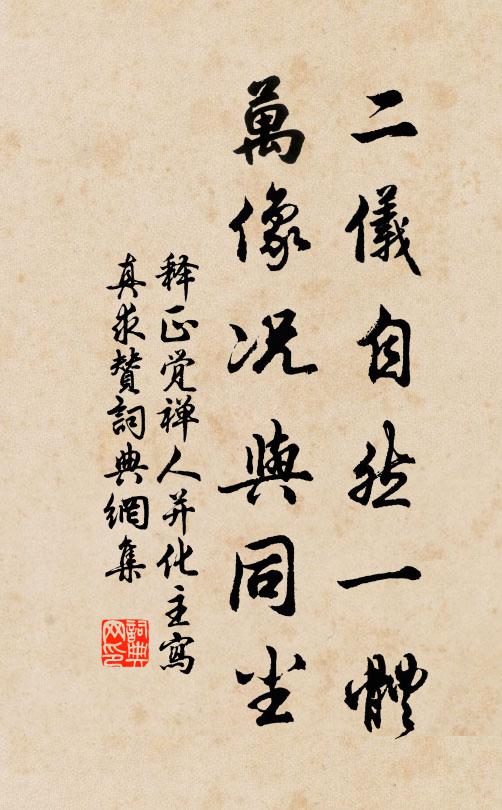 二儀自然一體
萬像况與同尘
释正觉禅人并化主寫
真求贊詞典網集
詞典网印